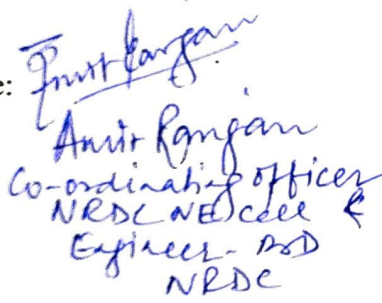 e:
Amit Rangan
Co-ordinating officer
NRDC NE Cell &
Engineer - BD
NRDC